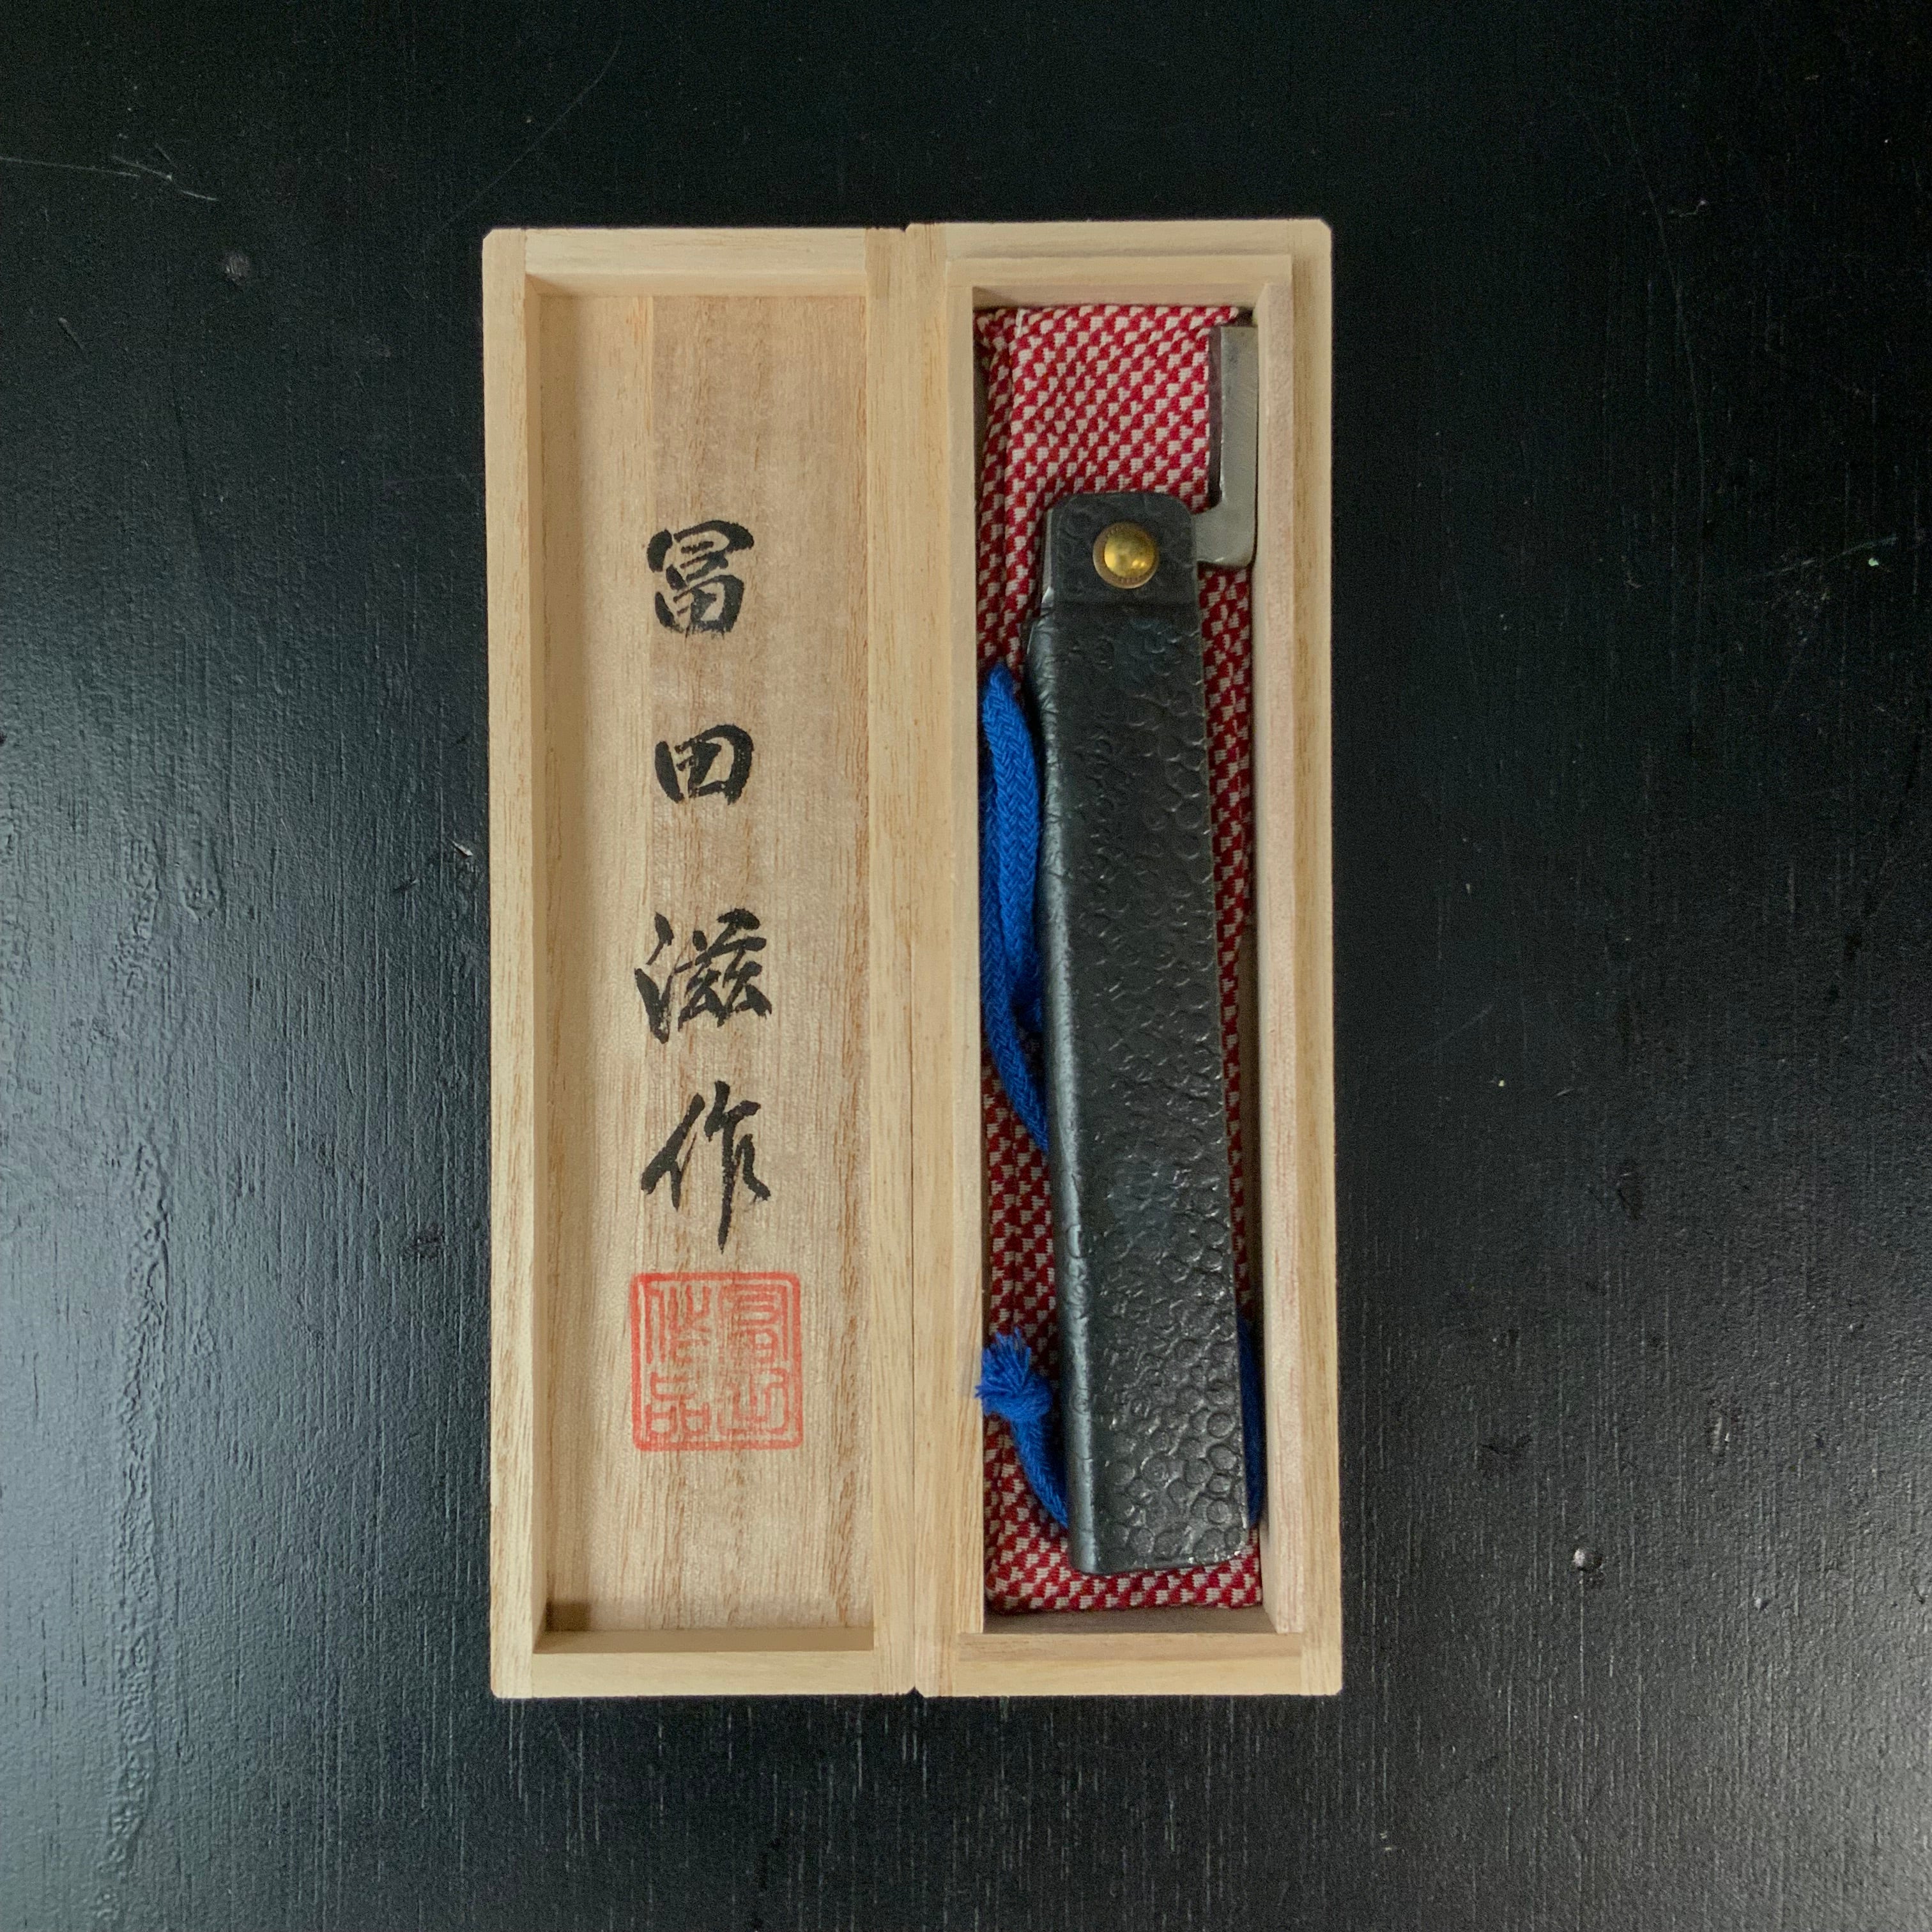 冨田滋作